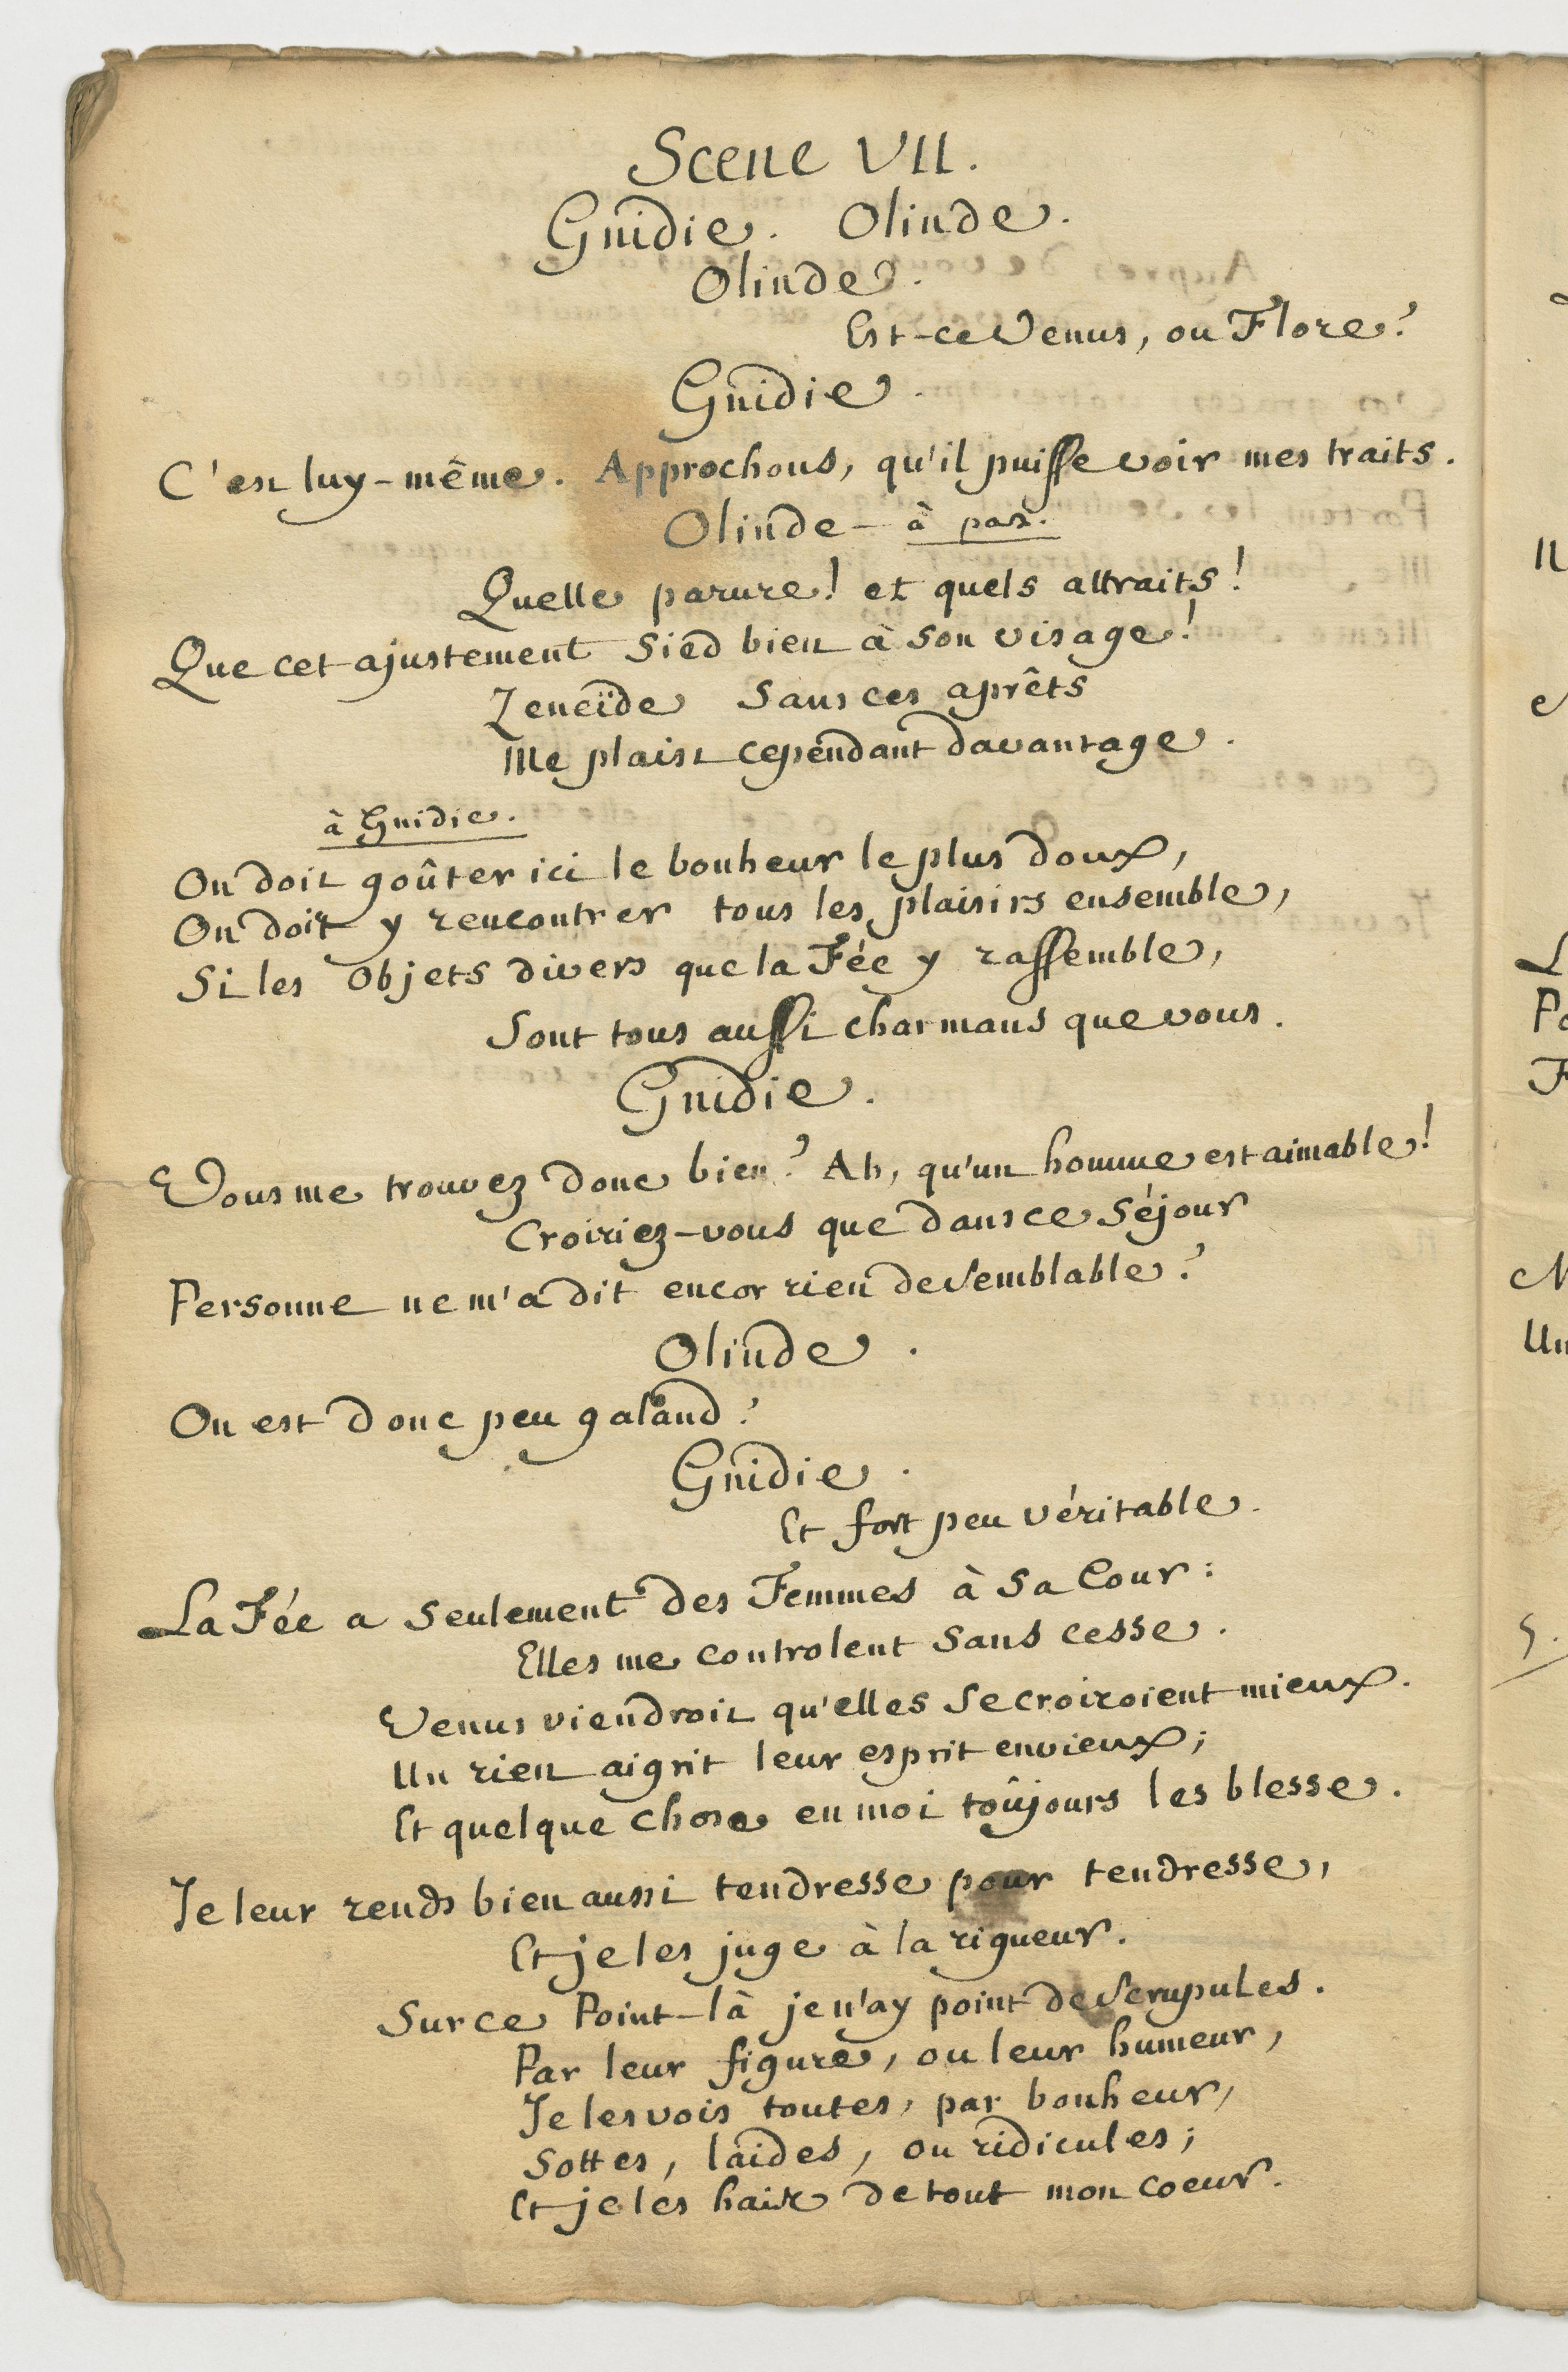 Scene VII.
Gnidie. Olinde.
Olinde.
Est-ce Venus, ou Flore?
Gnidie.
C'est luy-même. Approchons, qu'il puisse voir mes traits.
Olinde - à part.
Quelle parure! et quels attraits!
Que cet ajustement sied bien à son visage!
Zeneïde sans ces aprêts
Me plaist cependant davantage.
à Gnidie.
On doit goûter ici le bonheur le plus doux,
On doit y rencontrer tous les plaisirs ensemble,
Si les objets divers que la Fée y rassemble,
Sont tous aussi charmans que vous.
Gnidie.
Vous me trouvez donc bien? Ah, qu'un homme est aimable!
Croiriez-vous que dans ce séjour
Personne ne m'a dit encor rien de semblable?
Olinde.
On est donc peu galand?
Gnidie.
Et fort peu véritable.
La Fée a seulement des Femmes à sa Cour:
Elles me controlent sans cesse.
Venus viendroit qu'elles se croiroient mieux.
Un rien aigrit leur esprit envieux;
Et quelque chose en moi toûjours les blesse.
Je leur rends bien aussi tendresse pour tendresse,
Et je les juge à la rigueur.
Sur ce Point-là je n'ay point de Scrupules.
Par leur figure, ou leur humeur,
Je les vois toutes, par bonheur,
Sottes, laides, ou ridicules;
Et je les hais de tout mon coeur.